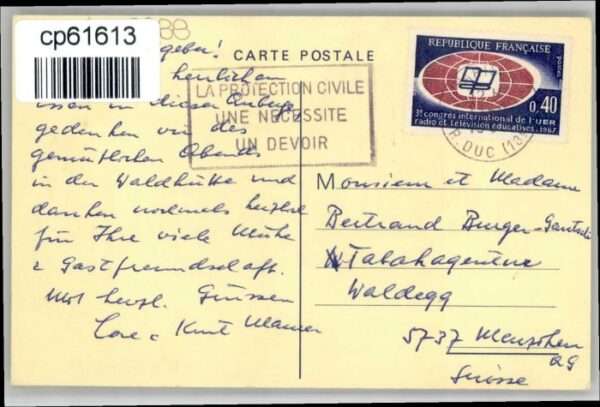 cp61613
88
CARTE POSTALE
LA PROTECTION CIVILE
UNE NECESSITE
UN DEVOIR
REPUBLIQUE FRANÇAISE
POSTES
0,40
3e congrès international de l'UER
radio et télévision éducatives. 1967
R. DUC (13)
geber!
herzlichen
in dieser Umbegg
gedenken wir des
gemütlichen Abends
in der Waldhütte und
danken nochmals herzlich
für Ihre viele Mühe
& Gastfreundschaft.
Mit herzl. Grüssen
Lore & Kurt
Monsieur et Madame
Bertrand Burger-
Tabakagentur
Waldegg
5737 Menziken
AG
Suisse